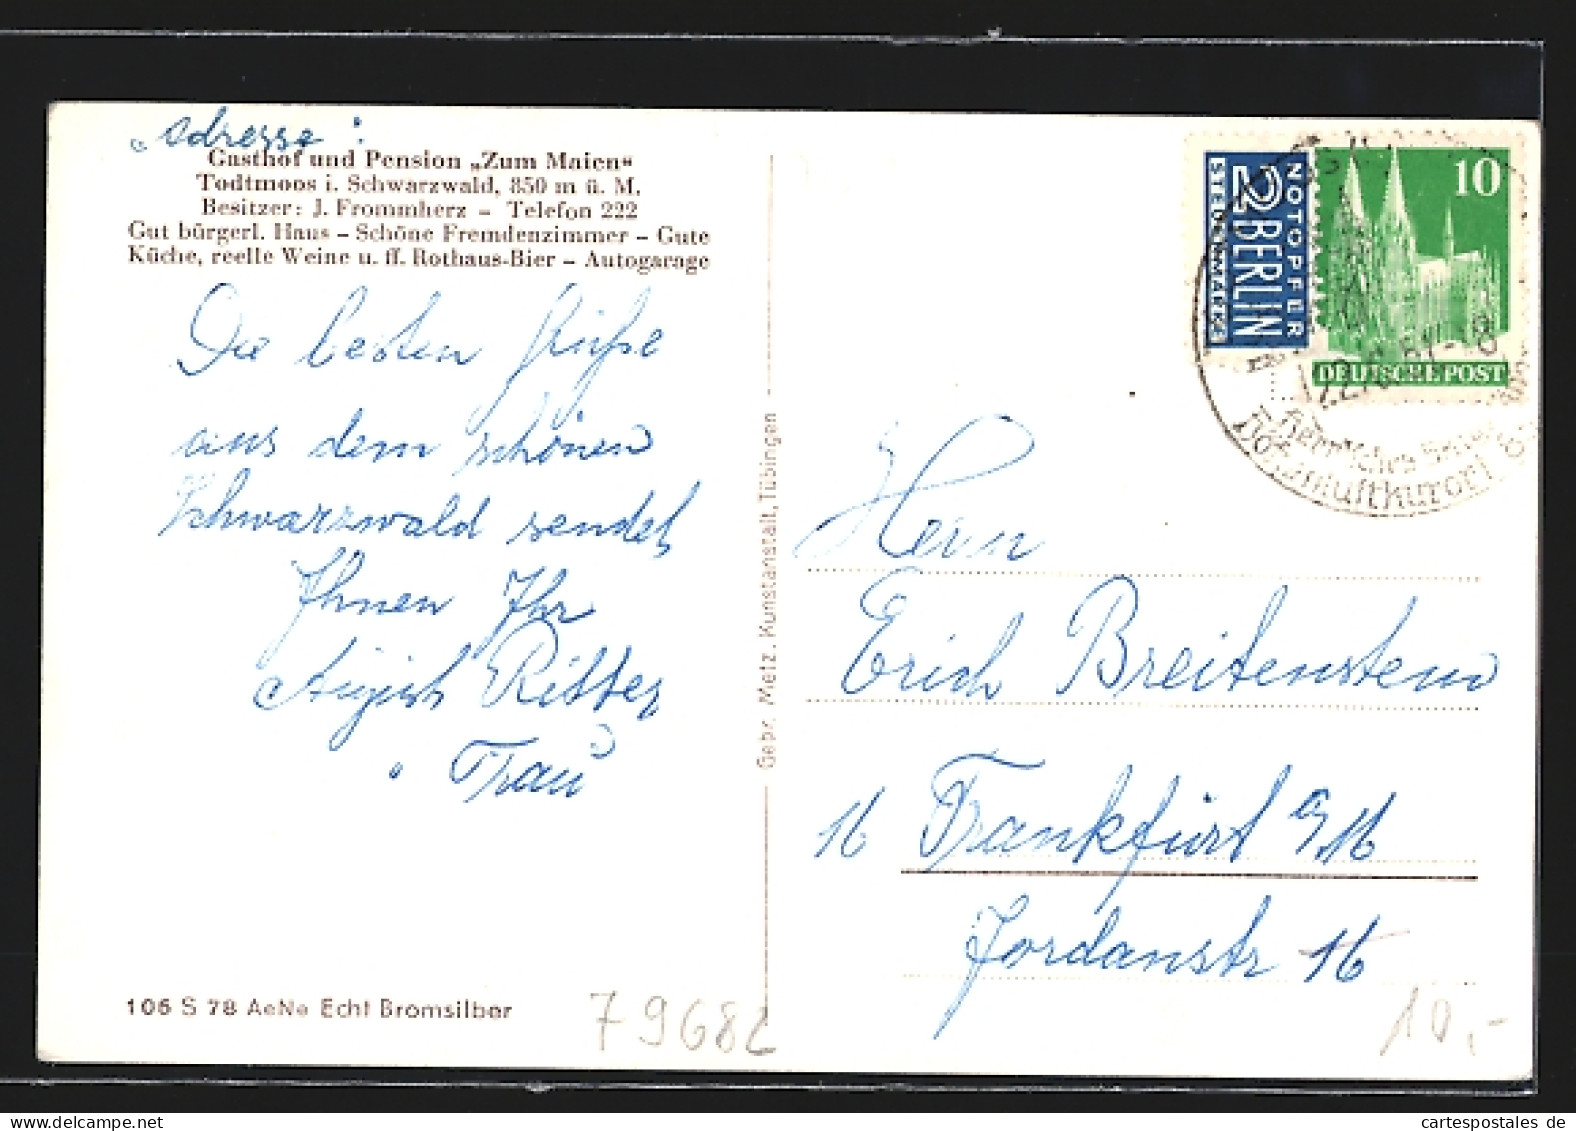 „Adresse":
Gasthof und Pension „Zum Maien“
Todtmoos i. Schwarzwald, 850 m ü. M.
Besitzer: J. Frommherz – Telefon 222
Gut bürgerl. Haus – Schöne Fremdenzimmer – Gute
Küche, reelle Weine u. ff. Rothaus-Bier – Autogarage
Die besten Grüße
aus dem schönen
Schwarzwald sendet
Ihnen Ihr
August Ritter
Frau
106 S 78 AeNe Echt Bromsilber
7968
Gebr. Metz, Kunstanstalt, Tübingen
NOTOPFER
2 BERLIN
STEUERMARKE
10
DEUTSCHE POST
Herrn
Erich Breitenstein
16 Frankfurt a/M
Jordanstr 16
10,-
cartespostales de